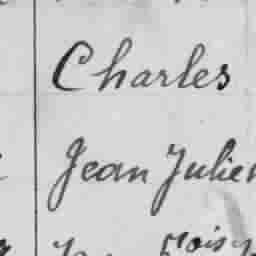 Charles
Jean Julien